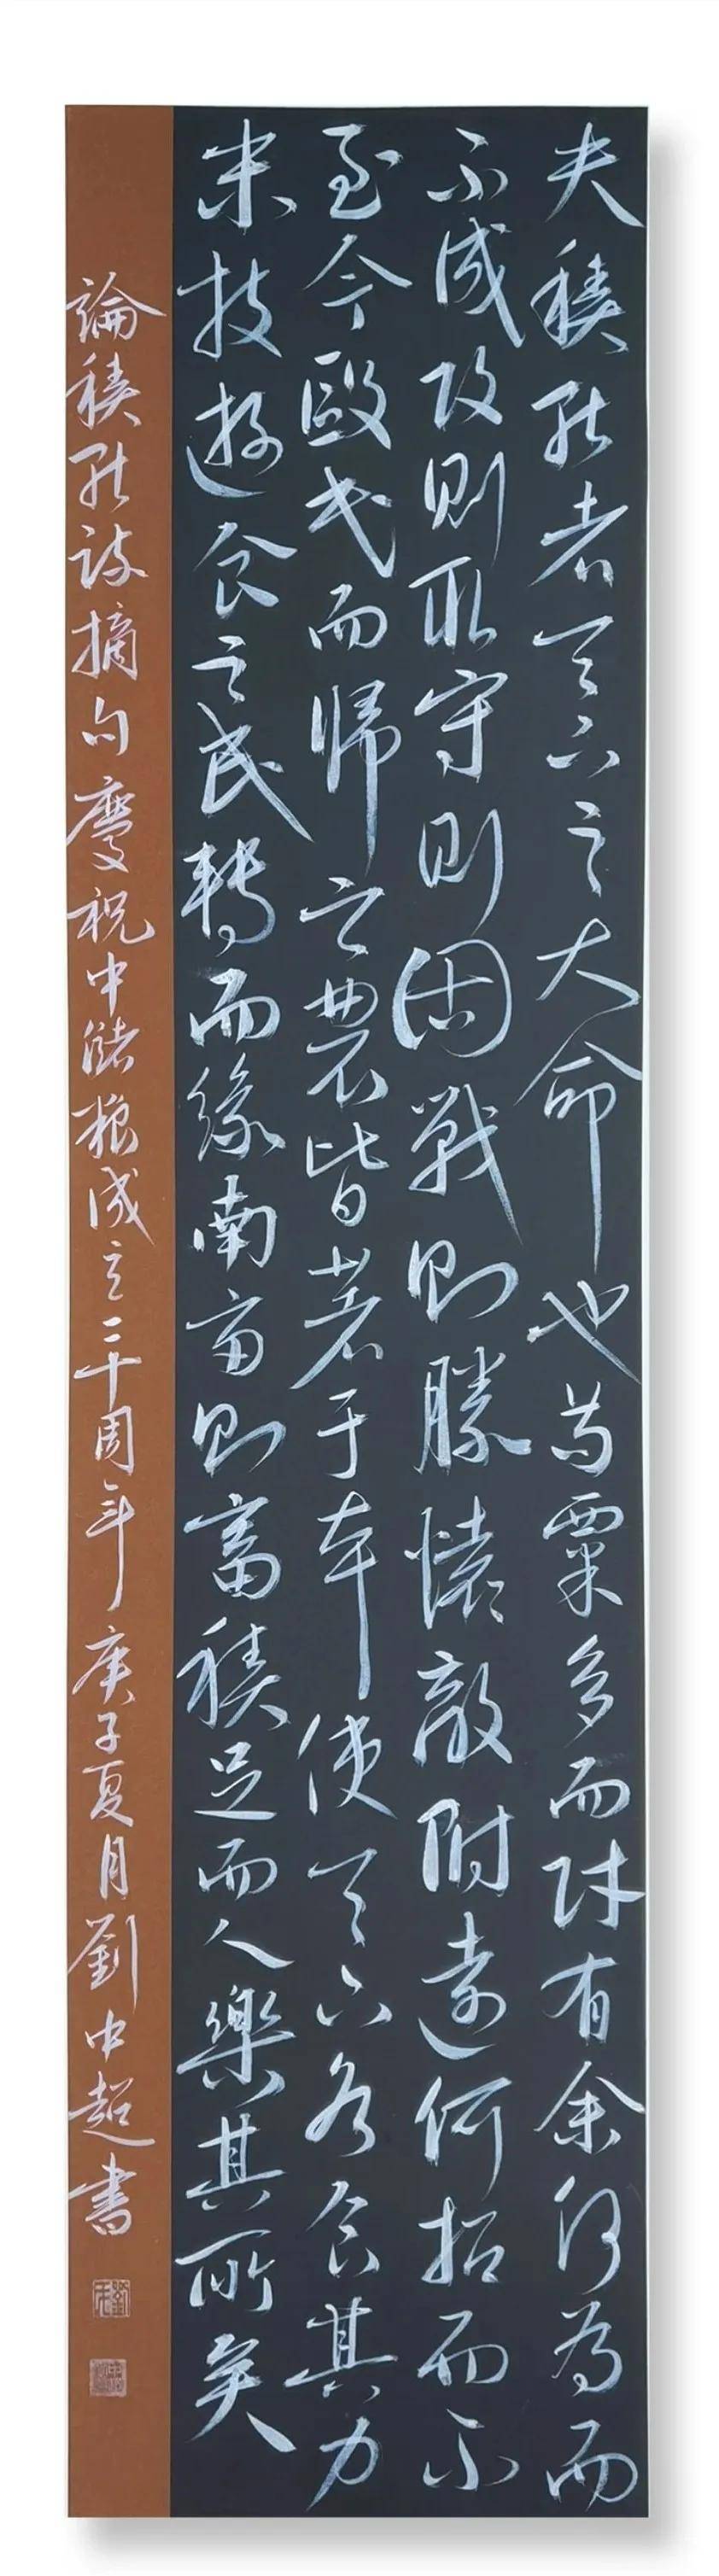 夫積貯者天下之大命也苟粟多而財有余何為而
不成攻則取守則固戰則勝懷敵附遠何招而不
至今毆民而歸之農皆著于本使天下各食其力
末技遊食之民轉而緣南畝則畜積足而人樂其所矣
論積貯疏摘句慶祝中儲粮成立二十周年庚子夏月劉中超書